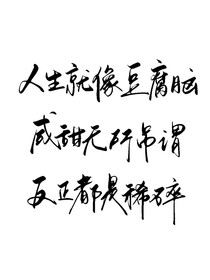 人生就像豆腐脑
咸甜无所吊谓
反正都是稀碎